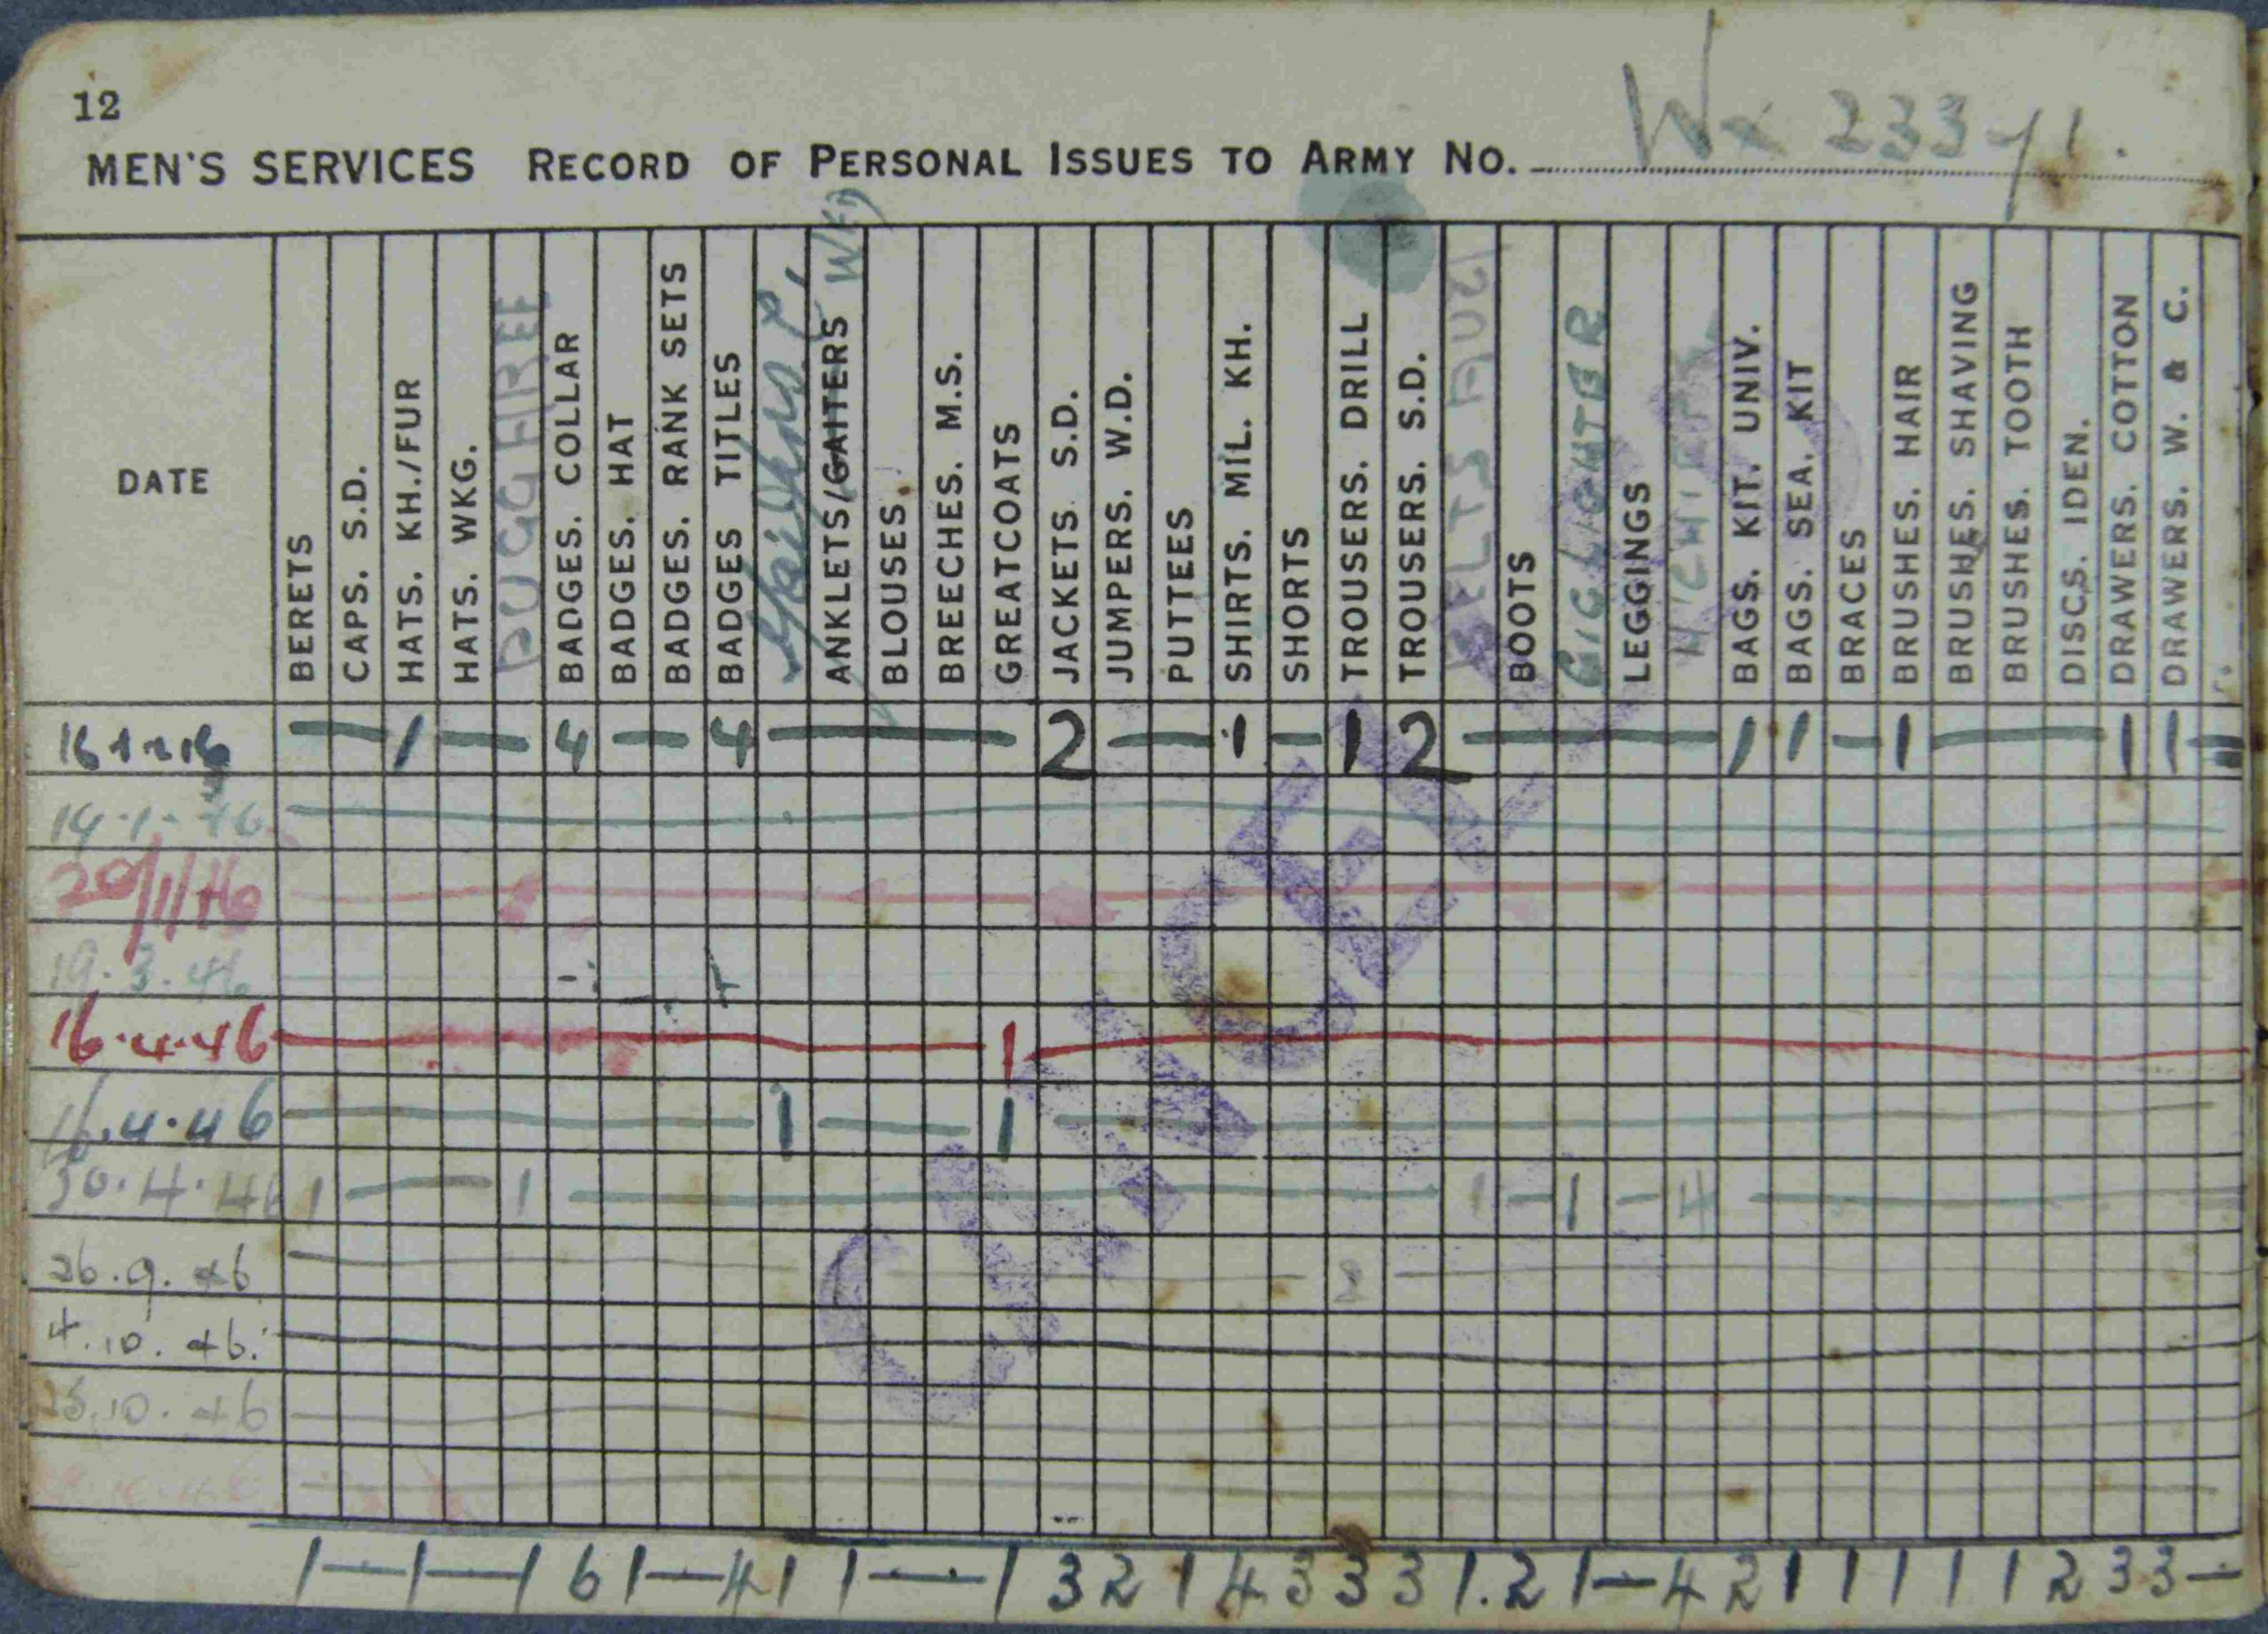 12
MEN'S SERVICES RECORD OF PERSONAL ISSUES TO ARMY NO. Wx 23371.
DATE
BERETS
CAPS. S.D.
HATS. KH./FUR
HATS. WKG.
BADGES. COLLAR
BADGES. HAT
BADGES. RANK SETS
BADGES TITLES
ANKLETS/GAITERS WED
BLOUSES.
BREECHES. M.S.
GREATCOATS
JACKETS. S.D.
JUMPERS. W.D.
PUTTEES
SHIRTS. MIL. KH.
SHORTS
TROUSERS. DRILL
TROUSERS. S.D.
BELTS
BOOTS
LEGGINGS
BAGS. KIT. UNIV.
BAGS. SEA. KIT
BRACES
BRUSHES. HAIR
BRUSHES. SHAVING
BRUSHES. TOOTH
DISCS. IDEN.
DRAWERS. COTTON
DRAWERS. W. & C.
— 1 — 4 — 4 — 2 — 1 — 1 2 — 1 1 — 1 — 1 1
14.1.46
20/1/46
19.3.46
16.4.46 — 1 —
16.4.46 — 1 — 1 —
30.4.46 1 — 1 — 1 — 1 — 4 —
26.9.46 — 2 —
4.10.46.
10.46
1 — 1 — 1 6 1 — 4 1 1 — 1 3 2 1 4 3 3 3 1. 2 1 — 4 2 1 1 1 1 1 2 3 3 —